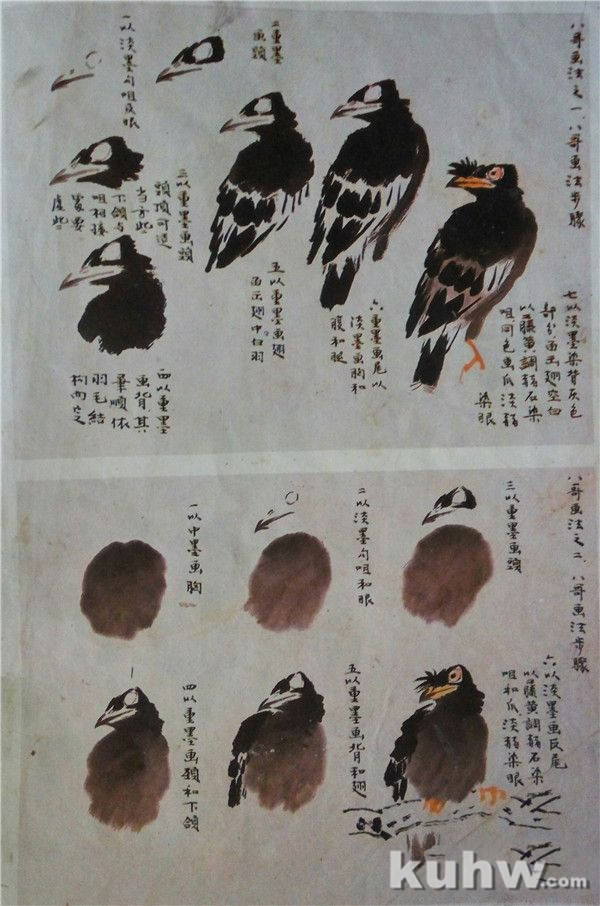 八哥画法之一、八哥画法步骤
一以淡墨勾咀及眼
二重墨
画头
三以重墨画颈
头顶可适
当方些
下颌与
咀相接
处要
虚些
四以重墨
画背其
笔顺依
羽毛结
构而定
五以重墨画翅
画出翅中白羽
六重墨画尾以
淡墨画胸和
腹和腿
七以淡墨染背灰色
部分画出翅空白
以藤黄调赭石染
咀同色画爪淡赭
染眼
八哥画法之二、八哥画法步骤
一以中墨画胸
二以淡墨勾咀和眼
三以重墨画头
四以重墨画颈和下颌
五以重墨画背和翅
六以淡墨画反尾
以藤黄调赭石染
咀和爪淡赭染眼
kuhw.com